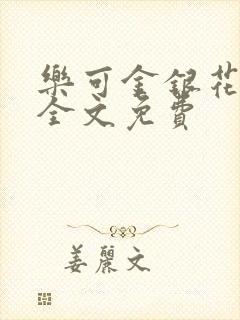 樂可金銀花
全文免費
姜麗文